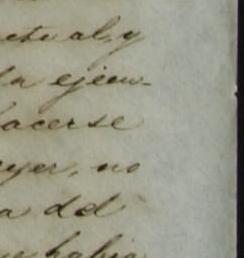 ctual, y
la ejecu-
hacerse
ayer, no
a del
habia